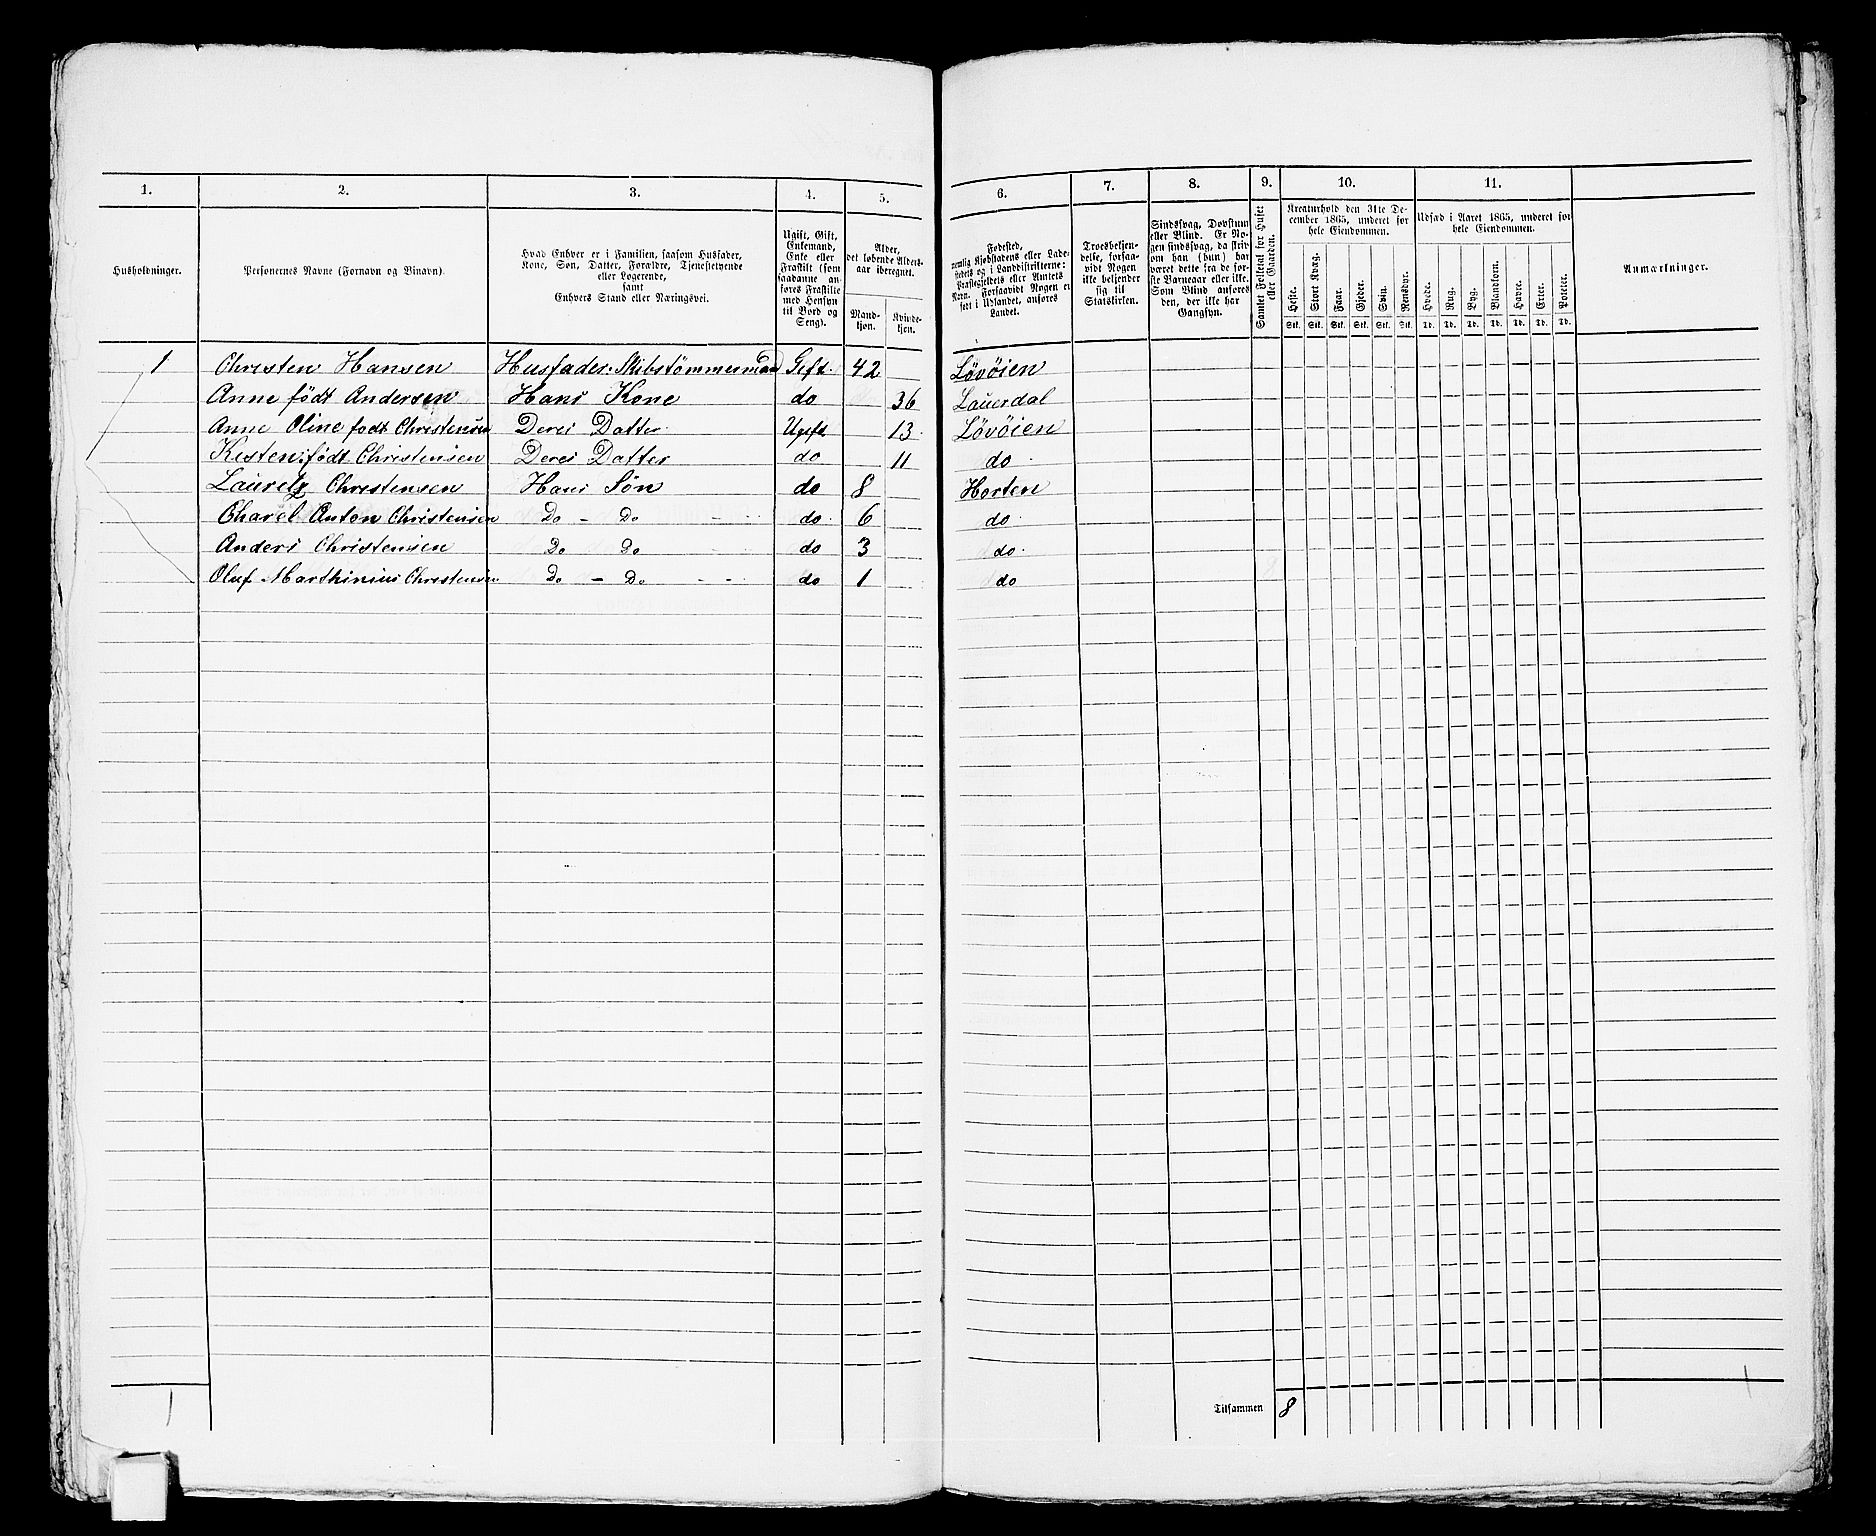 1. 2. 3. 4. 5. 6. 7. 8. 9. 10. 11.
Husholdninger.
Personernes Navne (Fornavn og Binavn).
Hvad Enhver er i Familien, saasom Husfader,
Kone, Søn, Datter, Forældre, Tjenestetyende
eller Logerende,
samt
Enhvers Stand eller Næringsvei.
Ugift, Gift,
Enkemand,
Enke eller
Fraskilt (som
saadanne an-
føres Fraskilte
med Hensyn
til Bord og
Seng).
Alder,
det løbende Alders-
aar iberegnet.
Mand-
kjøn.
Kvinde-
kjøn.
Fødested,
nemlig Kjøbstadens eller Lade-
stedets og i Landdistrikterne:
Præstegjeldets eller Amtets
Navn. Forsaavidt Nogen er
født i Udlandet, anføres
Landet.
Troesbekjen-
delse, forsaa-
vidt Nogen
ikke bekjender
sig til
Statskirken.
Sindssvag, Døvstum
eller Blind. Er No-
gen sindssvag, da skriv
om han (hun) har
været dette fra de før-
ste Barneaar eller ikke.
Som Blind anføres
den, der ikke har
Gangsyn.
Samlet Folketal for Huset
eller Gaarden.
Kreaturhold den 31te De-
cember 1865, underet for
hele Eiendommen.
Heste. Stort Kvæg. Faar. Gjeder. Svin. Rensdyr.
Stk. Stk. Stk. Stk. Stk. Stk.
Udsæd i Aaret 1865, underet for
hele Eiendommen.
Hvede. Rug. Byg. Blandkorn. Havre. Erter. Poteter.
Td. Td. Td. Td. Td. Td. Td.
Anmærkninger.
1 Christen Hansen Husfader. Skibstømmermand Gift. 42 Løvøien
Anne født Andersen Hans Kone do 36 Lauerdal
Anne Oline født Christensen Deres Datter Ugift 13 Løvøien
Kisten født Christensen Deres Datter do 11 do
Lauretz Christensen Hans Søn do 8 Horten
Charel Anton Christensen Do - Do do 6 do
Anders Christensen Do Do do 3 do
Oluf Marthinius Christensen Do - Do do 1 do
1
Tilsammen 8